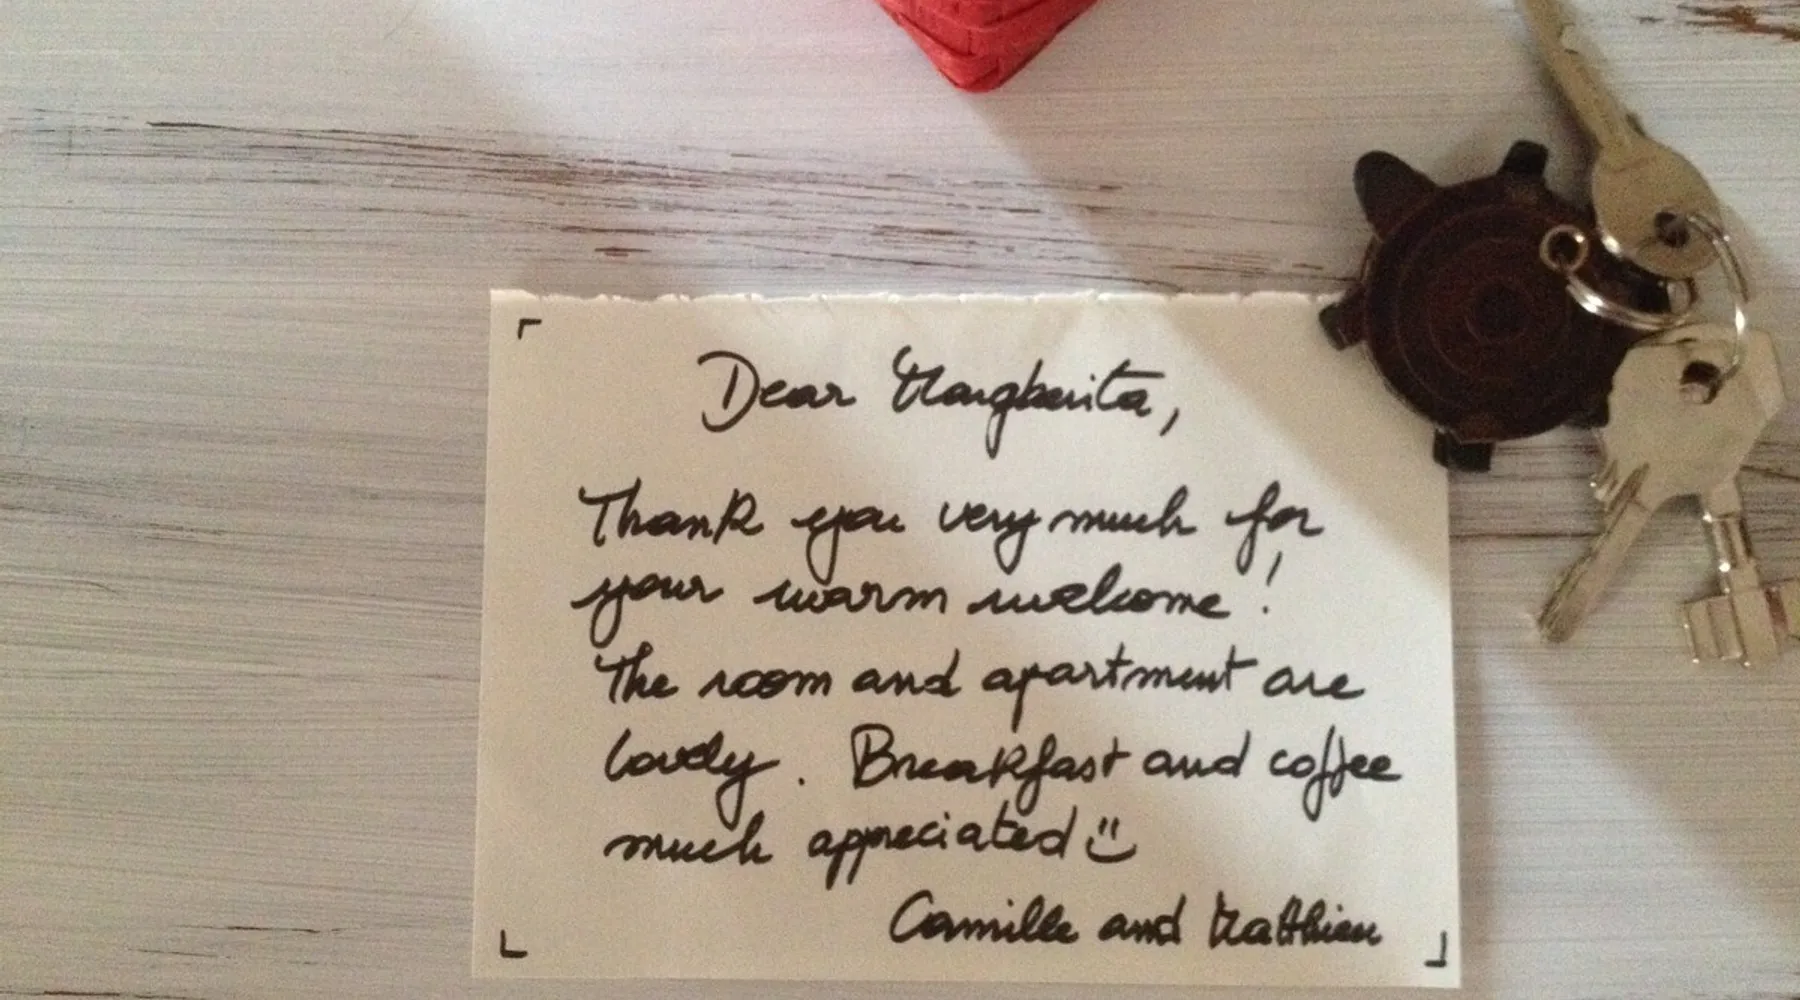 Dear Margherita,
Thank you very much for
your warm welcome!
The room and apartment are
lovely. Breakfast and coffee
much appreciated
Camille and Matthieu